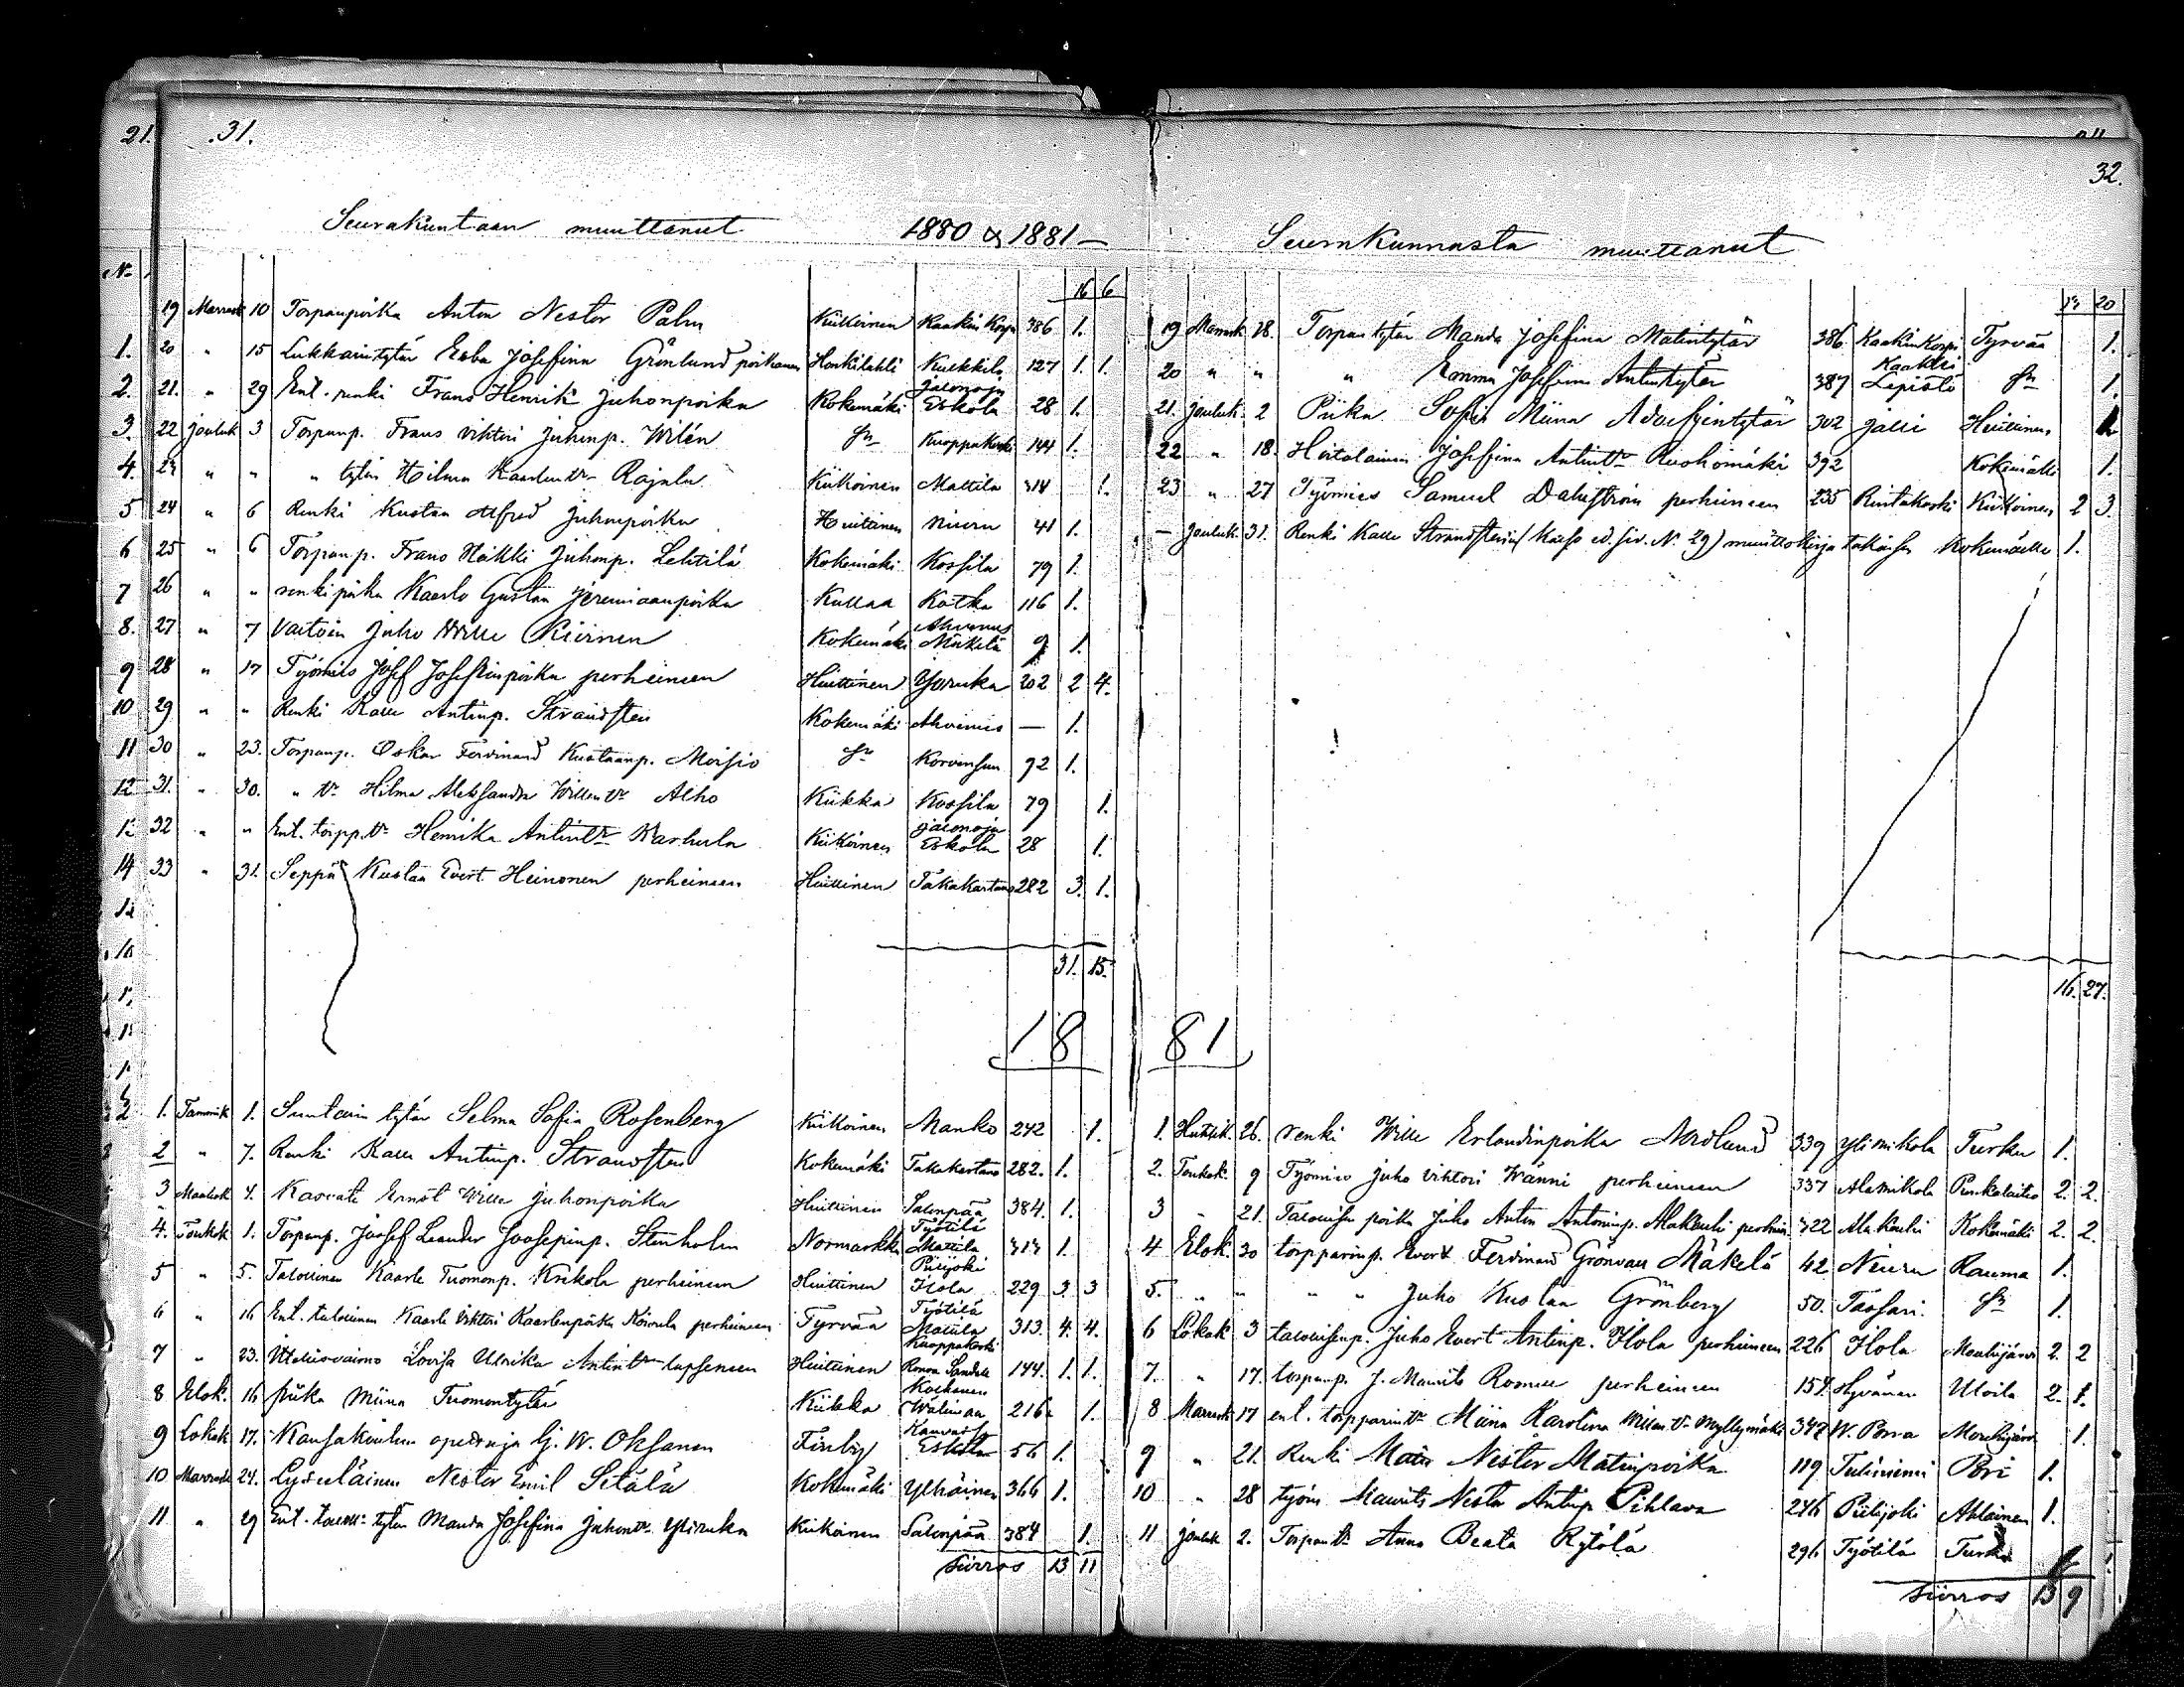 21. 31.
Seurakuntaan muuttanut 1880 & 1881 —
No 16 6
19 Marrask 10 Torpanpoika Anton Nestor Palm Kiikoinen Kaakin Korpi 386 1.
1. 20 " 15 Lukkarintytär Ebba Josefina Grönlund poikaneen Honkilahti Kukkila 127 1. 1.
2. 21. " 29 Ent. renki Frans Henrik Juhonpoika Kokemäki Jalonoja Eskola 28 1.
3. 22 Jouluk 3 Torpanp. Frans Vihtori Juhonp. Wilén Sn Kuoppakoski 144 1.
4. 23 " " " tytär Hilma Kaarlentr Rajala Kiikoinen Mattila 314 1.
5 24 " 6 Renki Kustaa Alfred Juhonpoika Huittinen Nieru 41 1.
6 25 " 6 Torpanp. Frans Heikki Juhonp. Lehtilä Kokemäki Kossila 79 1.
7 26 " " renkipoika Kaarlo Gustaa Jeremiaanpoika Kullaa Kotka 116 1.
8. 27 " 7 Juho Wille Kokemäki Ahvenus Mäkelä 9 1.
9 28 " 17 Työmies Josef Josefinpoika perheineen Huittinen Yjruka 202 2 4.
10 29 " " Renki Kalle Antinp. Strandsten Kokemäki Ahvenus — 1.
11 30 " 23. Torpanp. Oskar Ferdinand Kustaanp. Moisio Sn Korvensuu 92 1.
12 31. " 30. " tr Hilma Aleksandra Willentr Alho Kiikka Kossila 79 1.
32 " " Ent. torpp.tr Henrika Antintr Karhula Kiikoinen Jalonoja Eskola 28 1.
14 33 " 31. Seppä Kustaa Evert Heinonen perheineen Huittinen Takakartano 282 3. 1.
31. 15.
18
1. Tammik 1. Suntarin tytär Selma Sofia Rosenberg Kiikoinen Manko 242 1.
2 " 7. Renki Kalle Antinp. Strandsten Kokemäki Takakartano 282. 1.
3 Maalisk 4. Kasvatti Ernst Wille Juhonpoika Huittinen Salenpää 384. 1.
4. Toukok 1. Torpanp. Joosef Leander Joosepinp. Stenholm Normarkku Työtilä Mattila 313 1.
5 " 5. Talollinen Kaarle Tuomonp. Krekola perheineen Huittinen Piilijoki Ilola 229 3. 3
6 " 16 Ent. talollinen Kaarle Vihtori Kaarlenpoika Koivula perheineen Tyrvää Työtilä Mattila 313. 4. 4.
7 " 23. Itellisvaimo Lovisa Ulrika Antintr lapseneen Huittinen Kuoppakoski 144. 1. 1.
8 Elok. 16 piika Miina Tuomontytär Kiikka Walimaa 216. 1.
9 Lokak 17. Kansakoulun opettaja G. W. Oksanen Finby Kauvatsa Eskola 56 1.
10 Marrask 24. Nestor Emil Setälä Kokemäki Ylhäinen 366 1.
11 " 29 Ent. tytär Manda Josefina Juhontr Kiikoinen Salenpää 384 1.
siirros 13 11
32.
Seurakunnasta muuttanut
20
19 Marrask 18. Torpantytär Manda Josefina Matintytär 386 Kaakin Korpi Tyrvää 1.
20 " " " Emma Josefina Antintytär 387 Kaakki Lepistö Sn 1.
21. Jouluk. 2 Piika Sofia Miina Adolfsintytär 302 Jalli Huittinen 1
22 " 18. Hoitolainen Josefina Antintr Ruohomäki 392 Kokemäki 1.
23 " 27 Työmies Samuel Dahlström perheineen 235 Rintakoski Kiikoinen 2 3.
— Jouluk. 31. Renki Kalle Strandsten (katso ed. siv. N. 29) muuttokirja takaisin Kokemäelle 1.
16. 27.
81
1. Huhtik. 26. renki Wille Erlandinpoika Nordlund 339 Ylimikola Turku 1.
2. Toukok. 9 Työmies Juho Vihtori Wänni perheineen 337 Alamikola Punkalaitio 2. 2.
3 " 21. Talollisen poika Juho Anton Antoninp. Alakouli perhein. 322 Alakouli Kokemäki 2. 2.
4 Elok. 30 torpparinp. Evert Ferdinand Grönvall Mäkelä 42 Nieru Rauma 1.
5. " " " " Juho Kustaa Grönberg 50. Tassari. Sn 1.
6 Lokak 3 talollisenp. Juho Evert Antinp. Ilola perheineen 226 Ilola Mouhijärvi 2. 2
7. " 17. torpanp. J. Maurits Romell perheineen 157. Hyvänen Ulvila 2. 1.
8 Marrask 17 ent. torpparintr Miina Karolina Willentr Myllymäki 347 Mouhijärvi 1.
9 " 21. Renki Matts Nestor Matinpoika 119 Tulisniemi Pori 1.
10 " 28 työm Maurits Nestor Antinp Pihlava 246 Piilijoki Ahlainen 1.
11 Jouluk 2. Torpantr Anna Beata Rytölä 296 Työtilä Turku 1
siirros 13 9